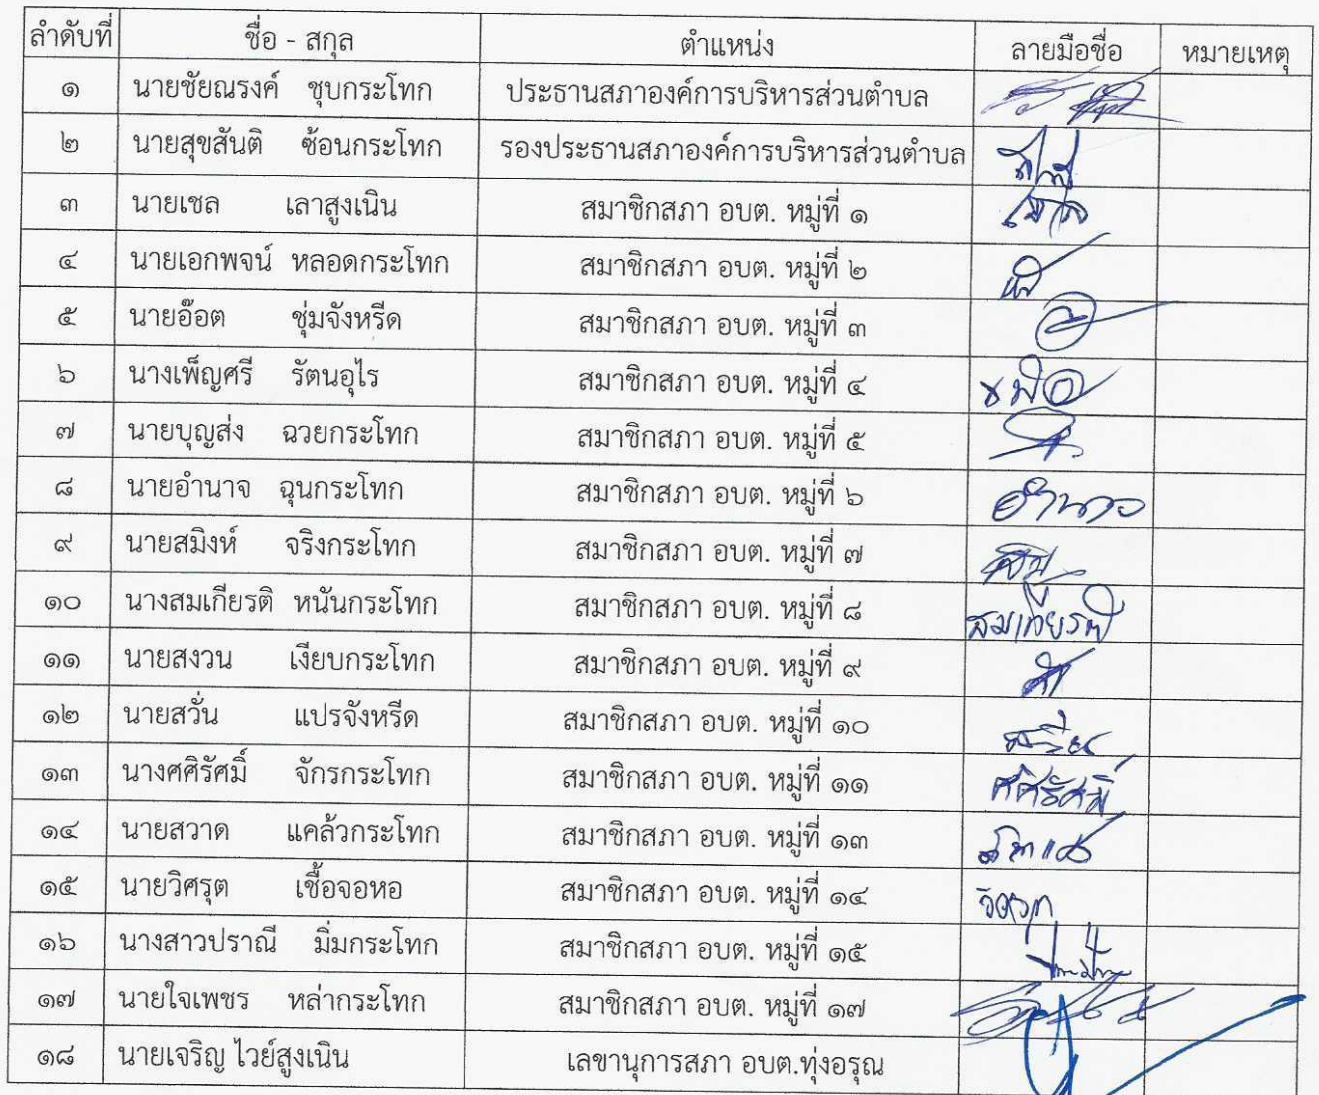 ลำดับที่ ชื่อ - สกุล ตำแหน่ง ลายมือชื่อ หมายเหตุ
๑ นายชัยณรงค์ ชุบกระโทก ประธานสภาองค์การบริหารส่วนตำบล
๒ นายสุขสันติ ซ้อนกระโทก รองประธานสภาองค์การบริหารส่วนตำบล
๓ นายเชล เลาสูงเนิน สมาชิกสภา อบต. หมู่ที่ ๑
๔ นายเอกพจน์ หลอดกระโทก สมาชิกสภา อบต. หมู่ที่ ๒
๕ นายอ๊อต ชุ่มจังหรีด สมาชิกสภา อบต. หมู่ที่ ๓
๖ นางเพ็ญศรี รัตนอุไร สมาชิกสภา อบต. หมู่ที่ ๔
๗ นายบุญส่ง ฉวยกระโทก สมาชิกสภา อบต. หมู่ที่ ๕
๘ นายอำนาจ ฉุนกระโทก สมาชิกสภา อบต. หมู่ที่ ๖ อำนาจ
๙ นายสมิงห์ จริงกระโทก สมาชิกสภา อบต. หมู่ที่ ๗
๑๐ นางสมเกียรติ หนันกระโทก สมาชิกสภา อบต. หมู่ที่ ๘ สมเกียรติ
๑๑ นายสงวน เงียบกระโทก สมาชิกสภา อบต. หมู่ที่ ๙
๑๒ นายสวั่น แปรจังหรีด สมาชิกสภา อบต. หมู่ที่ ๑๐
๑๓ นางศศิรัศมิ์ จักรกระโทก สมาชิกสภา อบต. หมู่ที่ ๑๑ ศศิรัศมิ์
๑๔ นายสวาด แคล้วกระโทก สมาชิกสภา อบต. หมู่ที่ ๑๓
๑๕ นายวิศรุต เชื้อจอหอ สมาชิกสภา อบต. หมู่ที่ ๑๔
๑๖ นางสาวปราณี มิ่มกระโทก สมาชิกสภา อบต. หมู่ที่ ๑๕
๑๗ นายใจเพชร หล่ากระโทก สมาชิกสภา อบต. หมู่ที่ ๑๗
๑๘ นายเจริญ ไวย์สูงเนิน เลขานุการสภา อบต.ทุ่งอรุณ